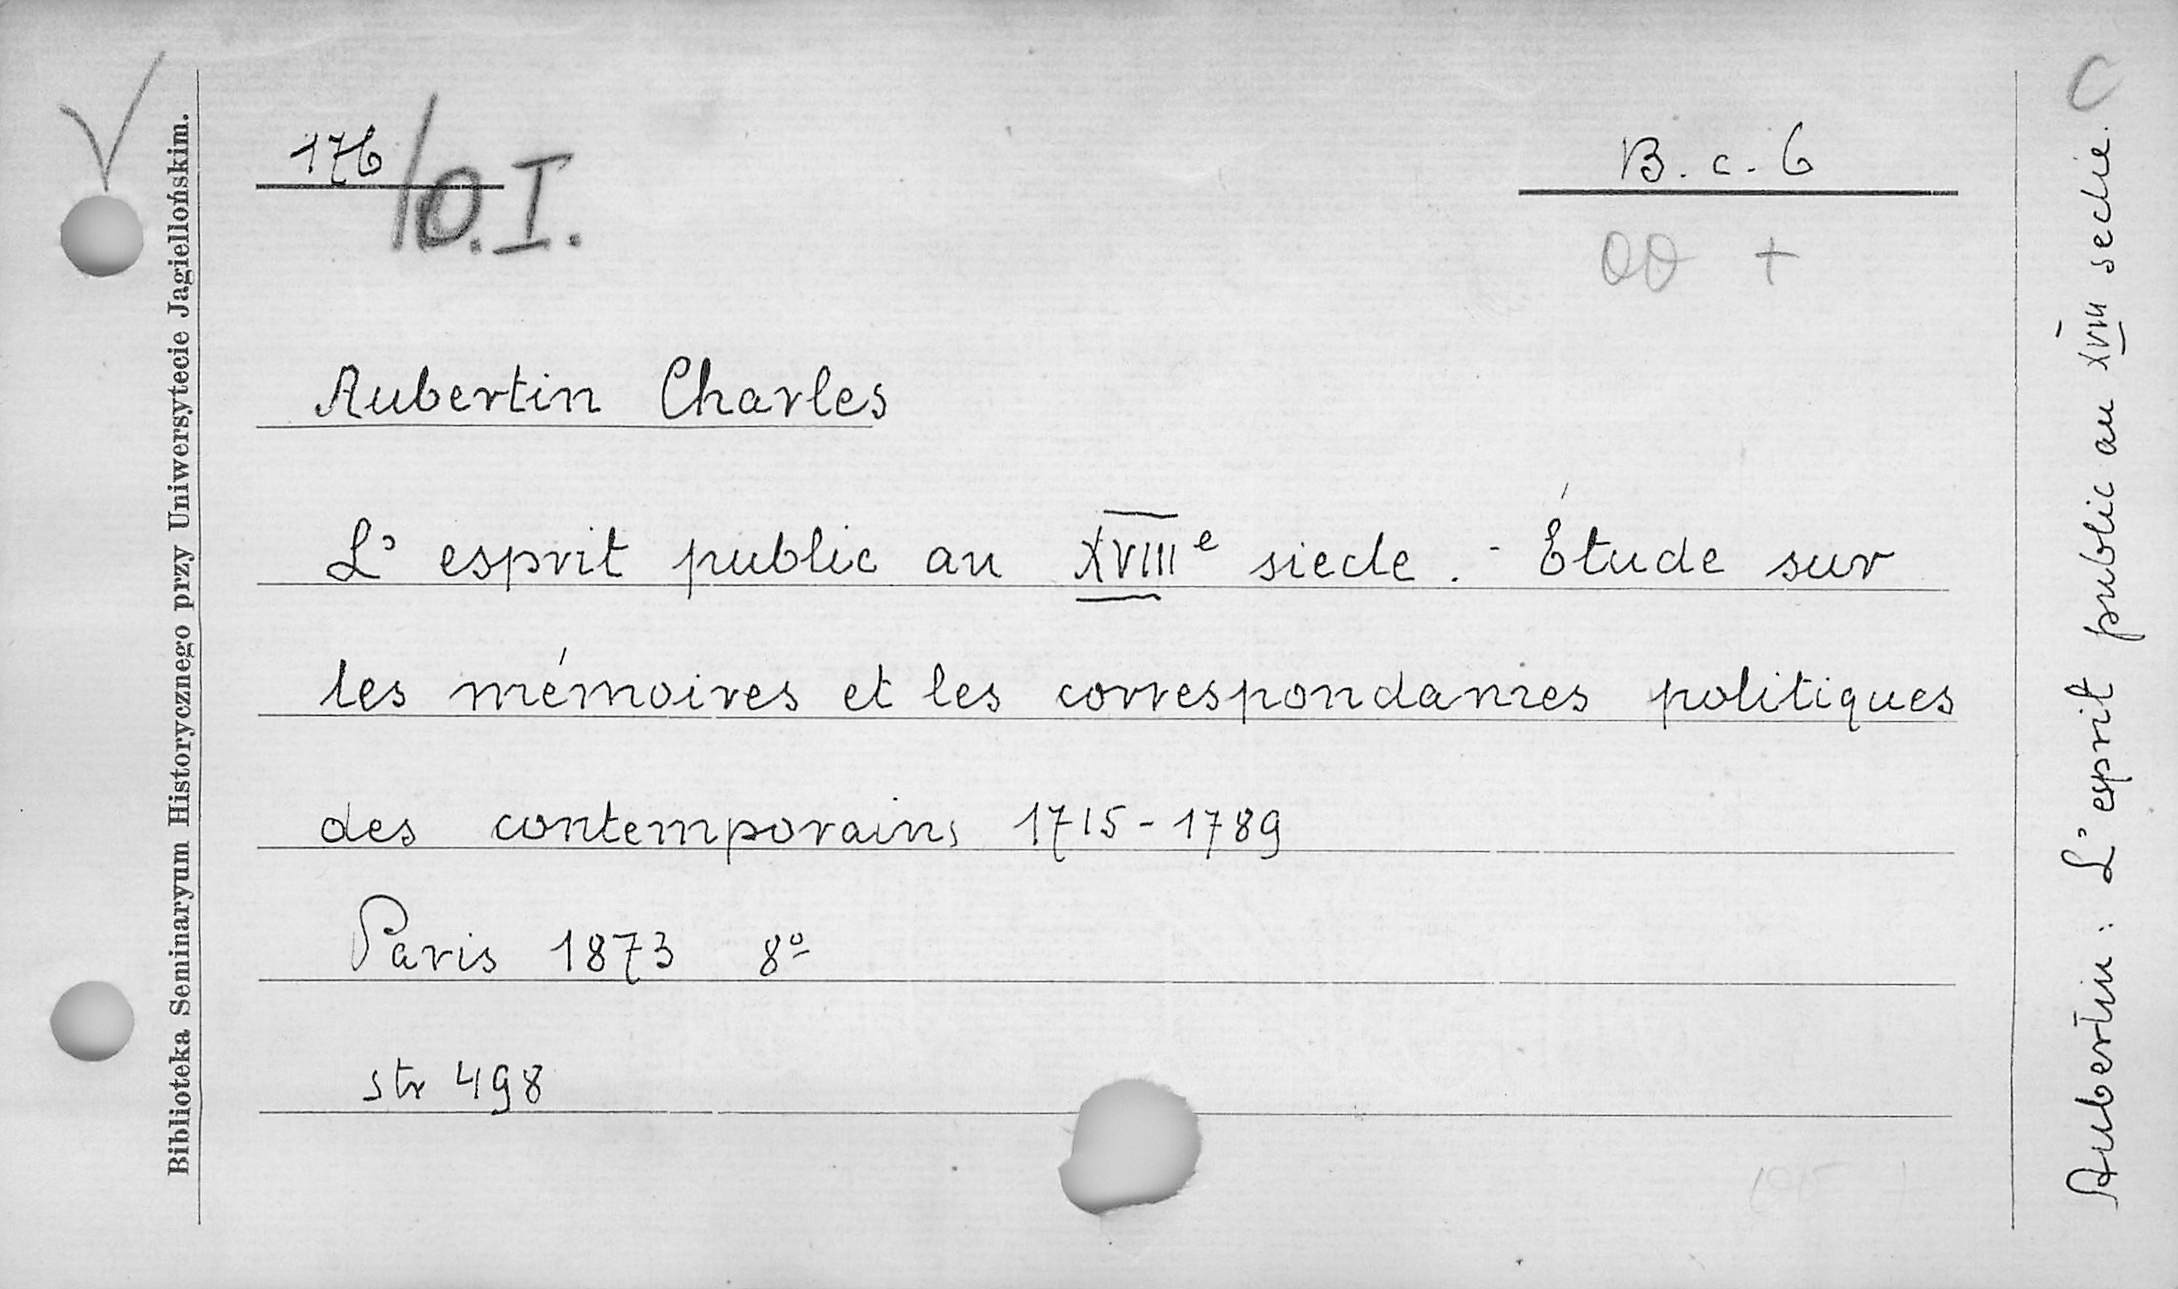 176/O.I.
B. c. 6
00 +
Aubertin Charles
L' esprit public au XVIIIe siecle. - Étude sur
les mémoires et les correspondances politiques
des contemporains 1715-1789
Paris 1873 8º
str 498
Biblioteka Seminaryum Historycznego przy Uniwersytecie Jagiellońskim.
C
Aubertin: L' esprit public au XVIII seclie.